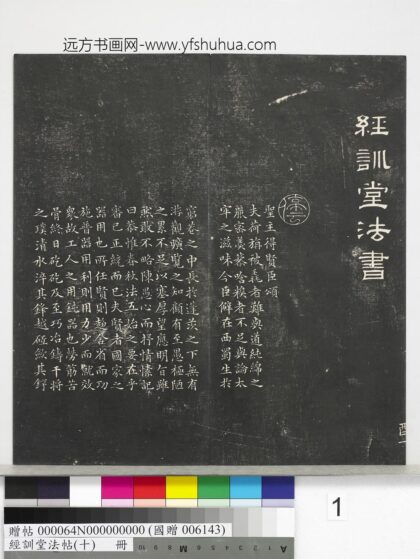 远方书画网-www.yfshuhua.com
經訓堂法書
聖主得賢臣頌
夫荷旃被毳者難與道純綿之
麗密羹藜唅糗者不足與論太
牢之滋味今臣僻在西蜀生於
窮巷之中長於蓬茨之下無有
游觀顧覽之知顧有至愚極陋
之累不足以塞厚望應明旨雖
然敢不略陳愚心而抒情愫記
曰恭惟春秋法五始之要在乎
審己正統而已夫賢者國家之
器用也所任賢則趨舍省而功
施普器用利則用力少而就效
衆故工人之用鈍器也勞筋苦
骨終日矻矻及至巧冶鑄干將
之璞清水淬其鋒越砥斂其鍔
1
贈帖 000064N000000000 (國贈 006143)
經訓堂法帖(十) 冊